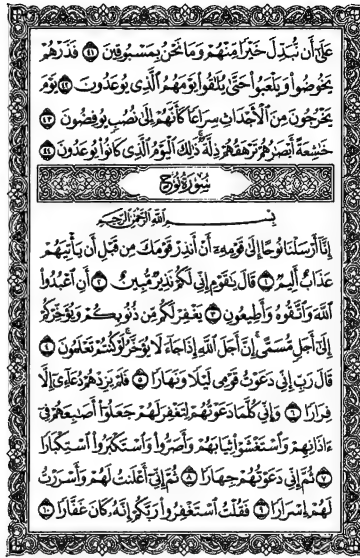 عَلَىٰ أَن نُّبَدِّلَ خَيْرًا مِّنْهُمْ وَمَا نَحْنُ بِمَسْبُوقِينَ ٤١ فَذَرْهُمْ
يَخُوضُوا۟ وَيَلْعَبُوا۟ حَتَّىٰ يُلَٰقُوا۟ يَوْمَهُمُ ٱلَّذِى يُوعَدُونَ ٤٢ يَوْمَ
يَخْرُجُونَ مِنَ ٱلْأَجْدَاثِ سِرَاعًا كَأَنَّهُمْ إِلَىٰ نُصُبٍ يُوفِضُونَ ٤٣
خَٰشِعَةً أَبْصَٰرُهُمْ تَرْهَقُهُمْ ذِلَّةٌ ۚ ذَٰلِكَ ٱلْيَوْمُ ٱلَّذِى كَانُوا۟ يُوعَدُونَ ٤٤
سُورَةُ نُوحٍ
بِسْمِ ٱللَّهِ ٱلرَّحْمَٰنِ ٱلرَّحِيمِ
إِنَّآ أَرْسَلْنَا نُوحًا إِلَىٰ قَوْمِهِۦٓ أَنْ أَنذِرْ قَوْمَكَ مِن قَبْلِ أَن يَأْتِيَهُمْ
عَذَابٌ أَلِيمٌ ١ قَالَ يَٰقَوْمِ إِنِّى لَكُمْ نَذِيرٌ مُّبِينٌ ٢ أَنِ ٱعْبُدُوا۟
ٱللَّهَ وَٱتَّقُوهُ وَأَطِيعُونِ ٣ يَغْفِرْ لَكُم مِّن ذُنُوبِكُمْ وَيُؤَخِّرْكُمْ
إِلَىٰٓ أَجَلٍ مُّسَمًّى ۚ إِنَّ أَجَلَ ٱللَّهِ إِذَا جَآءَ لَا يُؤَخَّرُ ۖ لَوْ كُنتُمْ تَعْلَمُونَ ٤
قَالَ رَبِّ إِنِّى دَعَوْتُ قَوْمِى لَيْلًا وَنَهَارًا ٥ فَلَمْ يَزِدْهُمْ دُعَآءِىٓ إِلَّا
فِرَارًا ٦ وَإِنِّى كُلَّمَا دَعَوْتُهُمْ لِتَغْفِرَ لَهُمْ جَعَلُوٓا۟ أَصَٰبِعَهُمْ فِىٓ
ءَاذَانِهِمْ وَٱسْتَغْشَوْا۟ ثِيَابَهُمْ وَأَصَرُّوا۟ وَٱسْتَكْبَرُوا۟ ٱسْتِكْبَارًا
٧ ثُمَّ إِنِّى دَعَوْتُهُمْ جِهَارًا ٨ ثُمَّ إِنِّىٓ أَعْلَنتُ لَهُمْ وَأَسْرَرْتُ
لَهُمْ إِسْرَارًا ٩ فَقُلْتُ ٱسْتَغْفِرُوا۟ رَبَّكُمْ إِنَّهُۥ كَانَ غَفَّارًا ١٠